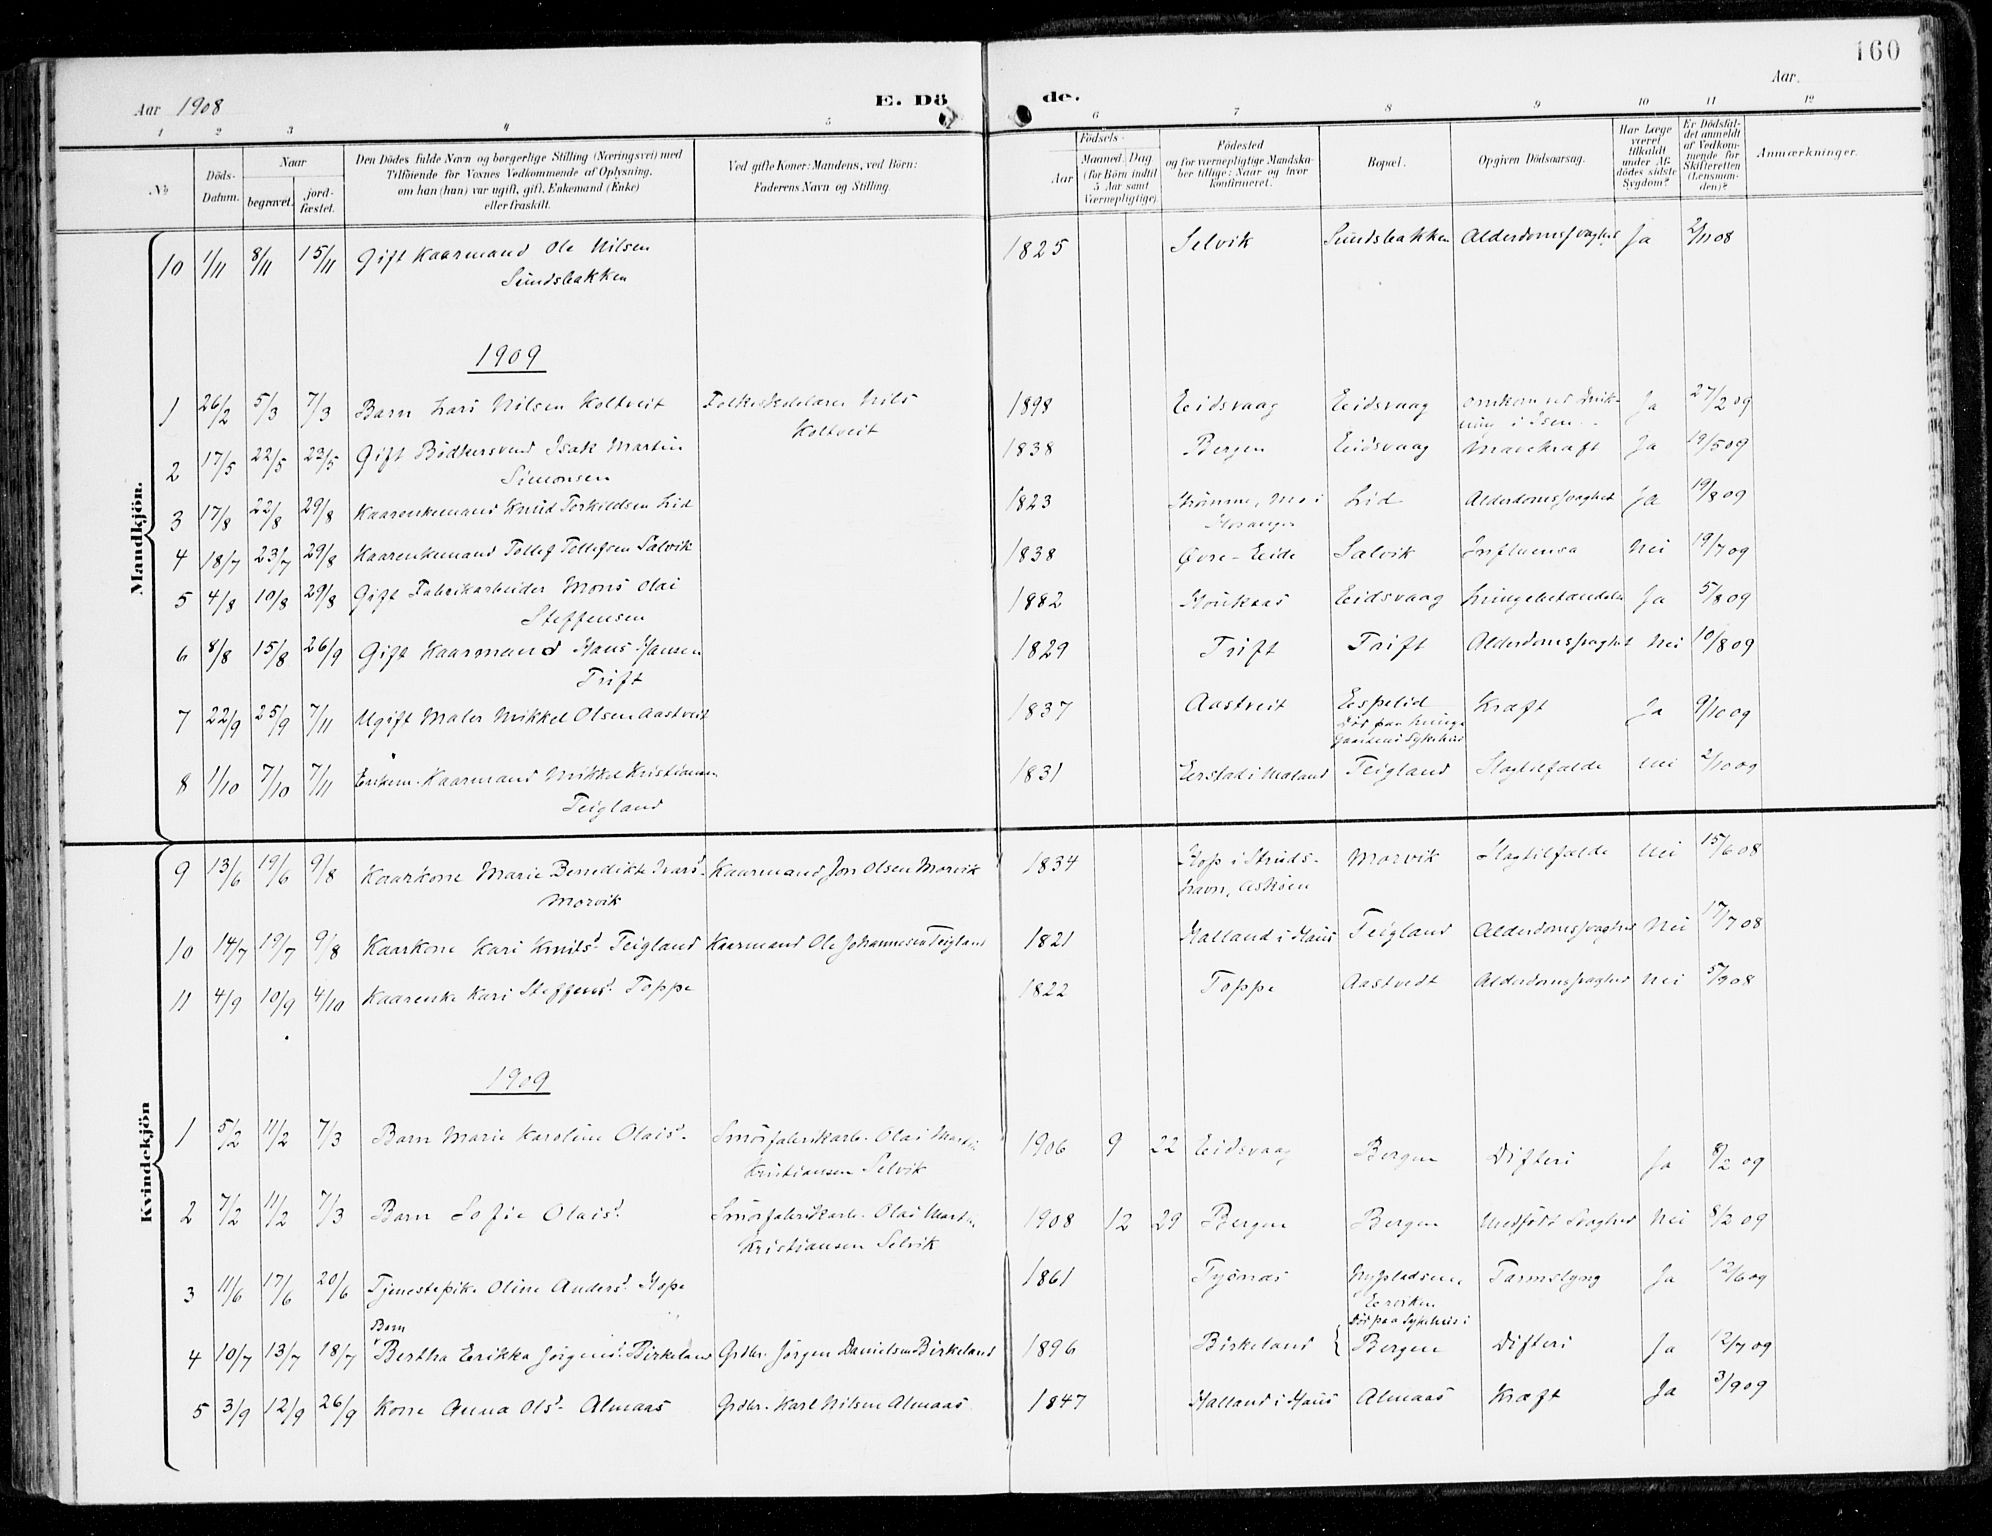 160
Aar 1908
E. Dö
de.
Aar.
1 2 3 4 5 6 7 8 9 10 11 12
No
Döds-Datum.
Naar
begravet.
jord-fæstet.
Den Dödes fulde Navn og borgerlige Stilling (Næringsvei) med
Tilföiende for Voxnes Vedkommende af Oplysning,
om han (hun) var ugift, gift, Enkemand (Enke)
eller fraskilt.
Ved gifte Koner: Mandens, ved Börn:
Faderens Navn og Stilling.
Födsels-
Aar
Maaned. Dag
(for Börn indtil
5 Aar samt
Værnepligtige).
Födested
og for værnepligtige Mandska-
ber tillige: Naar og hvor
konfirmeret.
Bopæl.
Opgiven Dödsaarsag.
Har Læge
været
tilkaldt
under Af-
dödes sidste
Sygdom?
Er Dödsfal-
det anmeldt
af Vedkom-
mende for
Skifteretten
(Lensman-
den)?
Anmærkninger.
Mandkjön.
10 1/11 8/11 15/11 Gift Kaarmand Ole Nilsen 1825 Selvik Sundsbakken Alderdomssvaghet Ja 2/11 08
Sundsbakken
1909
1 26/2 5/3 7/3 Barn Lars Nilsen Koltveit Folkeskolelærer Nils 1898 Eidsvaag Eidsvaag omkom ved Ja 27/2 09
Koltveit i Isen.
2 17/5 22/5 23/5 Gift Bødkersvend Isak Martin 1838 Bergen Eidsvaag Mavekræft Ja 19/5 09
Simonsen
3 17/8 22/8 29/8 Kaarenkemand Knud Torkildsen Lid 1823 Strømme, Mo i Lid Alderdomssvaghet Ja 19/8 09
Hosanger
4 18/7 23/7 29/8 Kaarenkemand Tollef Tollefsen Salvik 1838 Øvre-Eide Salvik Influensa Nei 19/7 09
5 4/8 10/8 29/8 Gift Fabrikarbeider Mons Olai 1882 Eidsvaag Lungebetændelse Ja 5/8 09
Steffensen
6 8/8 15/8 26/9 Gift Kaarmand Hans Hansen 1829 Trift Trift Alderdomssvaghet Nei 10/8 09
Trift
7 22/9 25/9 7/11 Ugift Maler Mikkel Olsen Aastveit 1837 Aastveit Espelid Kræft Ja 9/10 09
Død paa Lunge-
gaardens Sykehus
8 1/10 7/10 7/11 Enkem. Kaarmand Mikkel Kristiansen 1831 Erstad i Maland Teigland Slagtilfælde Nei 2/10 09
Teigland
Kvindekjön
9 13/6 19/6 9/8 Kaarkone Marie Benedikte Ivarsd. Kaarmand Jon Olsen Morvik 1834 Hop i Struds- Morvik Slagtilfælde Nei 15/6 08
Morvik havn, Askøen
10 14/7 19/7 9/8 Kaarkone Kari Knutsd. Teigland Kaarmand Ole Johannesen Teigland 1821 Halland i Haus Teigland Alderdomssvaghed Nei 17/7 08
11 4/9 10/9 4/10 Kaarenke Kari Steffensd. Toppe 1822 Toppe Aastvedt Alderdomssvaghed Nei 5/9 08
1909
1 5/2 11/2 7/3 Barn Marie Karoline Olaisd. Smørfabrikarb. Olai Martin 1906 9 22 Eidsvaag Bergen Difteri Ja 8/2 09
Kristiansen Selvik
2 7/2 11/2 7/3 Barn Sofie Olaisd. Smørfabrikarb. Olai Martin 1908 12 29 Bergen Bergen Medfødt Svaghed Nei 8/2 09
Kristiansen Selvik
3 11/6 17/6 20/6 Tjenestepike Oline Andersd. Hope 1861 Tysnæs Nypladsene, Tarmslyng Ja 12/6 09
Eerviken
Barn Død paa Sykehus i
4 10/7 13/7 18/7 Bertha Erikka Jørgensd. Birkeland Grdbr. Jørgen Danielsen Birkeland 1896 Birkeland Bergen Difteri Ja 12/7 09
5 3/9 12/9 26/9 Kone Anna Olsd. Almaas Grdbr. Karl Nilsen Almaas 1847 Halland i Haus Almaas Kræft Ja 3/9 09